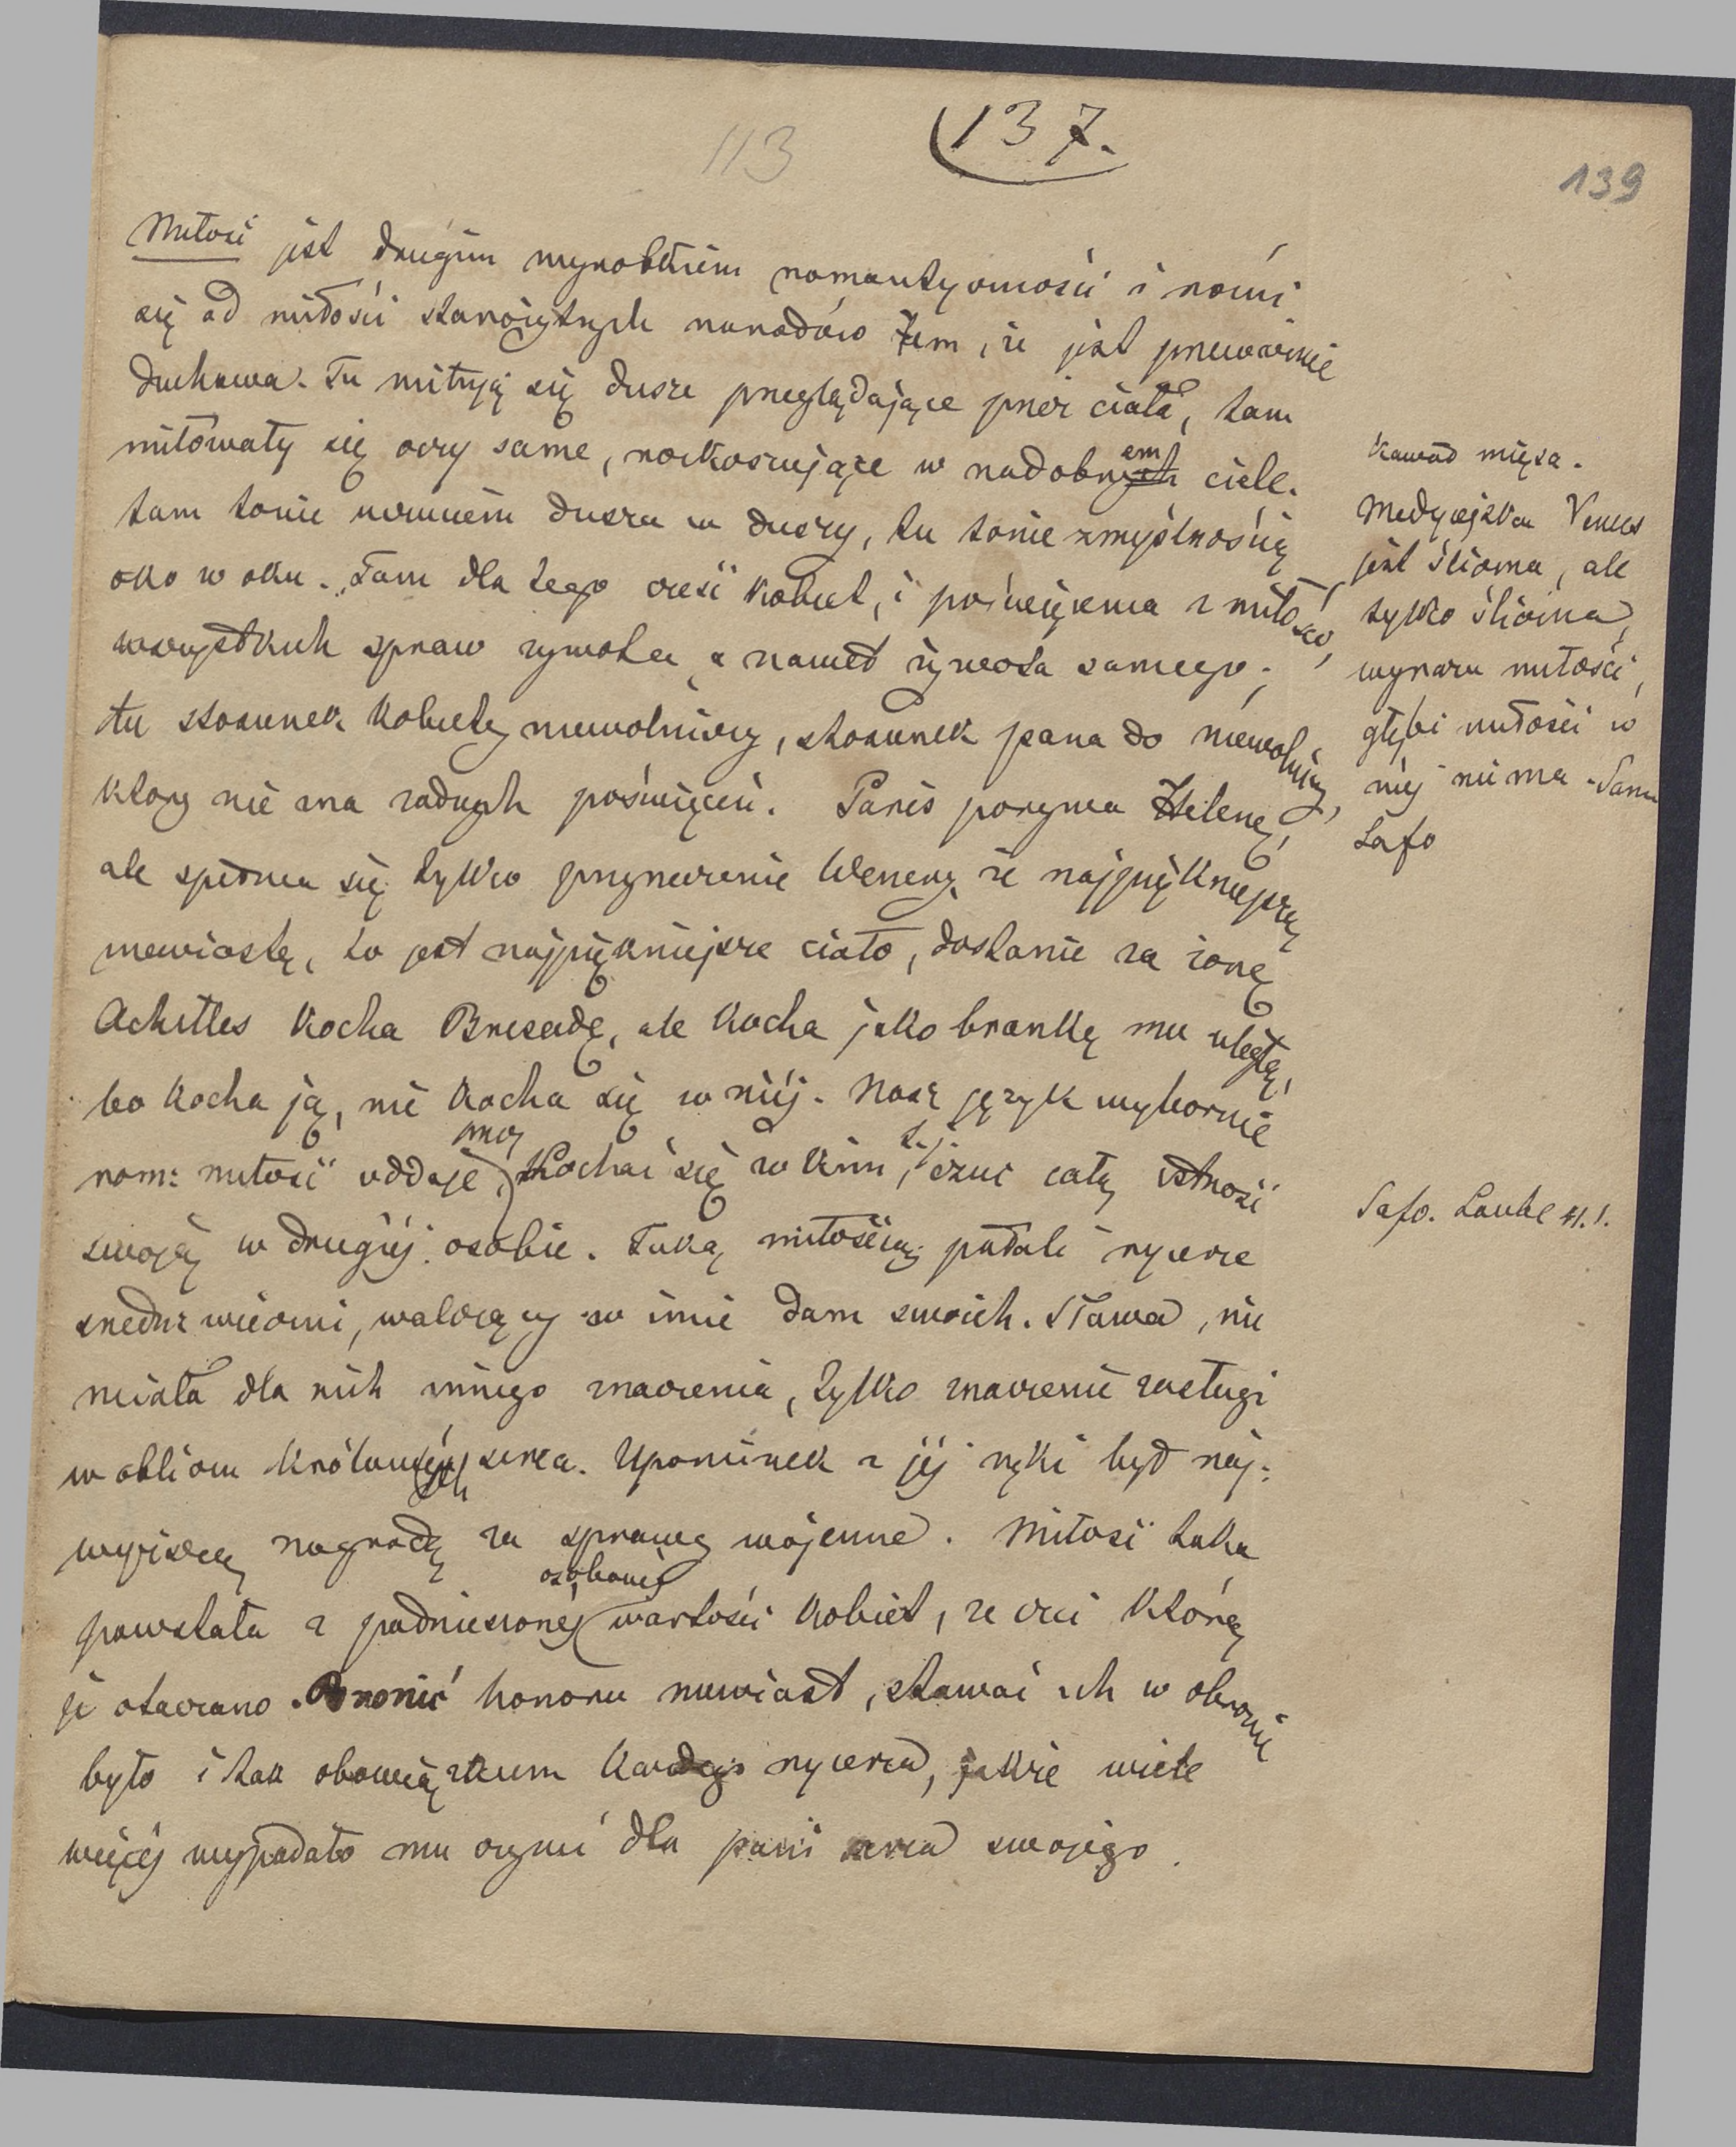 113
137.
139
Miłość jest drugim wyrobkiem romantyczności i różni
się od miłości starożytnych narodów tem, że jest przeważnie
duchowa. Tu miłują się dusze przeglądające przez ciała, tam
miłowały się oczy same, rozkoszujące w nadobnych em ciele.
tam tonie uczuciem dusza w duszy, tu tonie zmysłnością
oko w oku. Tam dla tego cześć kobiet, i poświęcenia z miłości,
wszystkich spraw żywota, a nawet żywota samego;
tu stosunek kobiety niewolnicy, stosunek pana do niewolnicy,
który nie zna żadnych poświęceń. Paris porywa Helenę,
ale spełnia się tylko przyrzeczenie Wenery, że najpiękniejszą
niewiastę, to jest najpiękniejsze ciało, dostanie za żonę
Achilles kocha Brizeidę, ale kocha jako brankę mu uległą,
bo kocha ją, nie kocha się w niéj. Nasz język wybornie
rom: miłość oddaje, przez Kochać się w kim, t.j. czuć całą istność
swoją w drugiéj osobie. Taką miłością pałali rycerze
średniowieczni, walczący w imie dam swoich. Sława, nie
miała dla nich innego znaczenia, tylko znaczenie zasługi
w obliczu królowéj serca. Upominek z jéj ręki był naj-
wyższą nagrodą za sprawę wojenne. Miłość taka
powstała z podniesionéj osobowéj wartości kobiet, ze czci którą
je otaczano. Bronić honoru niewiast, stawać ich w obronie
było i tak obowiązkiem każdego rycerza, jakże wiele
więcéj wypadało mu czynić dla pani serca swojego.
Kawał mięsa.
Medycejska Venus
jest śliczna, ale
tylko śliczna,
wyrazu miłości,
głębi miłości w
niéj nie ma. Sama
Safo
Safo. Laube